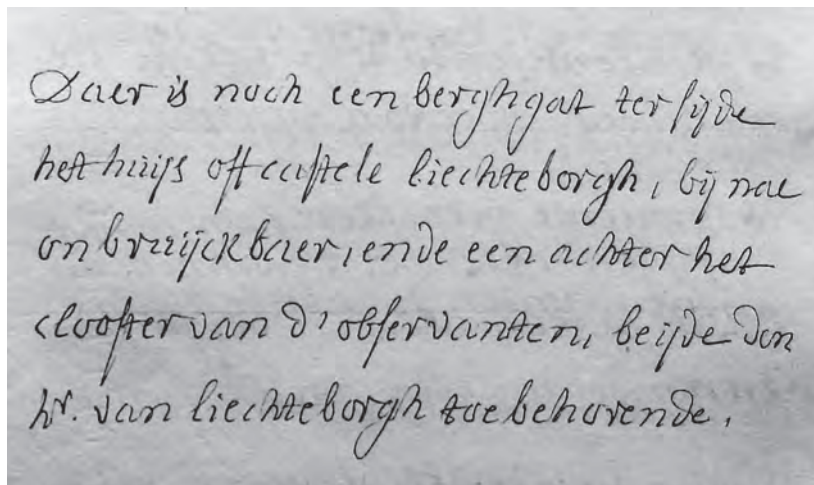 Daer is noch een berghgat ter sijde
het huijs oft castele liechteborgh, bij nae
onbruijckbaer, ende een achter het
clooster van d'observanten, beijde den
hr. van liechteborgh toebehorende.